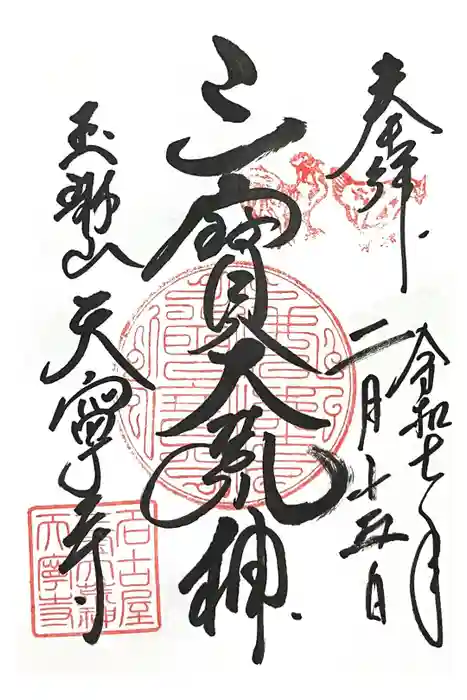 奉拝
令和七年
二月十五日
三寳大荒神
天寧寺
名古屋
天寧寺